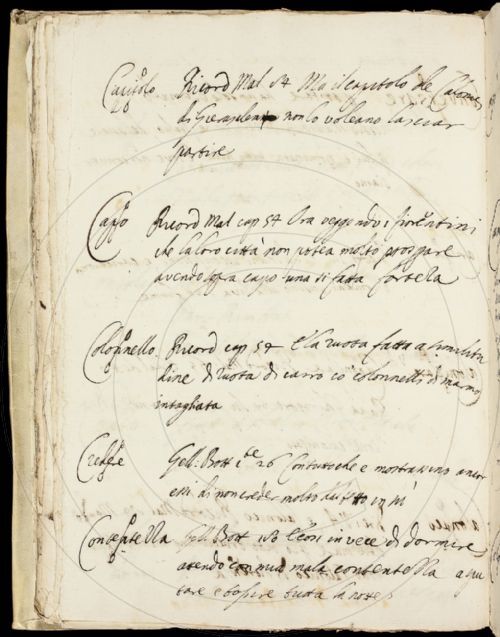 Capitolo Ricord Mal 54 Ma il capitolo de Calonaci
di Gierusalem non lo voleano lasciar
partire
Capo Ricord Mal cap 54 Ora veggendo i fiorentini
che la loro città non potea molto prosperare
avendo sopra capo una si fatta fortezza
Colonnello Ricord cap 54 È la ruota fatta a similitu
dine di ruota di carro co colonnelli di marmo
intagliata
Credere Gell. Bott 26 Contuttoche e mostrassino ancor
essi di non creder molto
Contentella Gell. Bott E cosi in vece di dormire,
avendo con mia mala contentella
tutta la notte